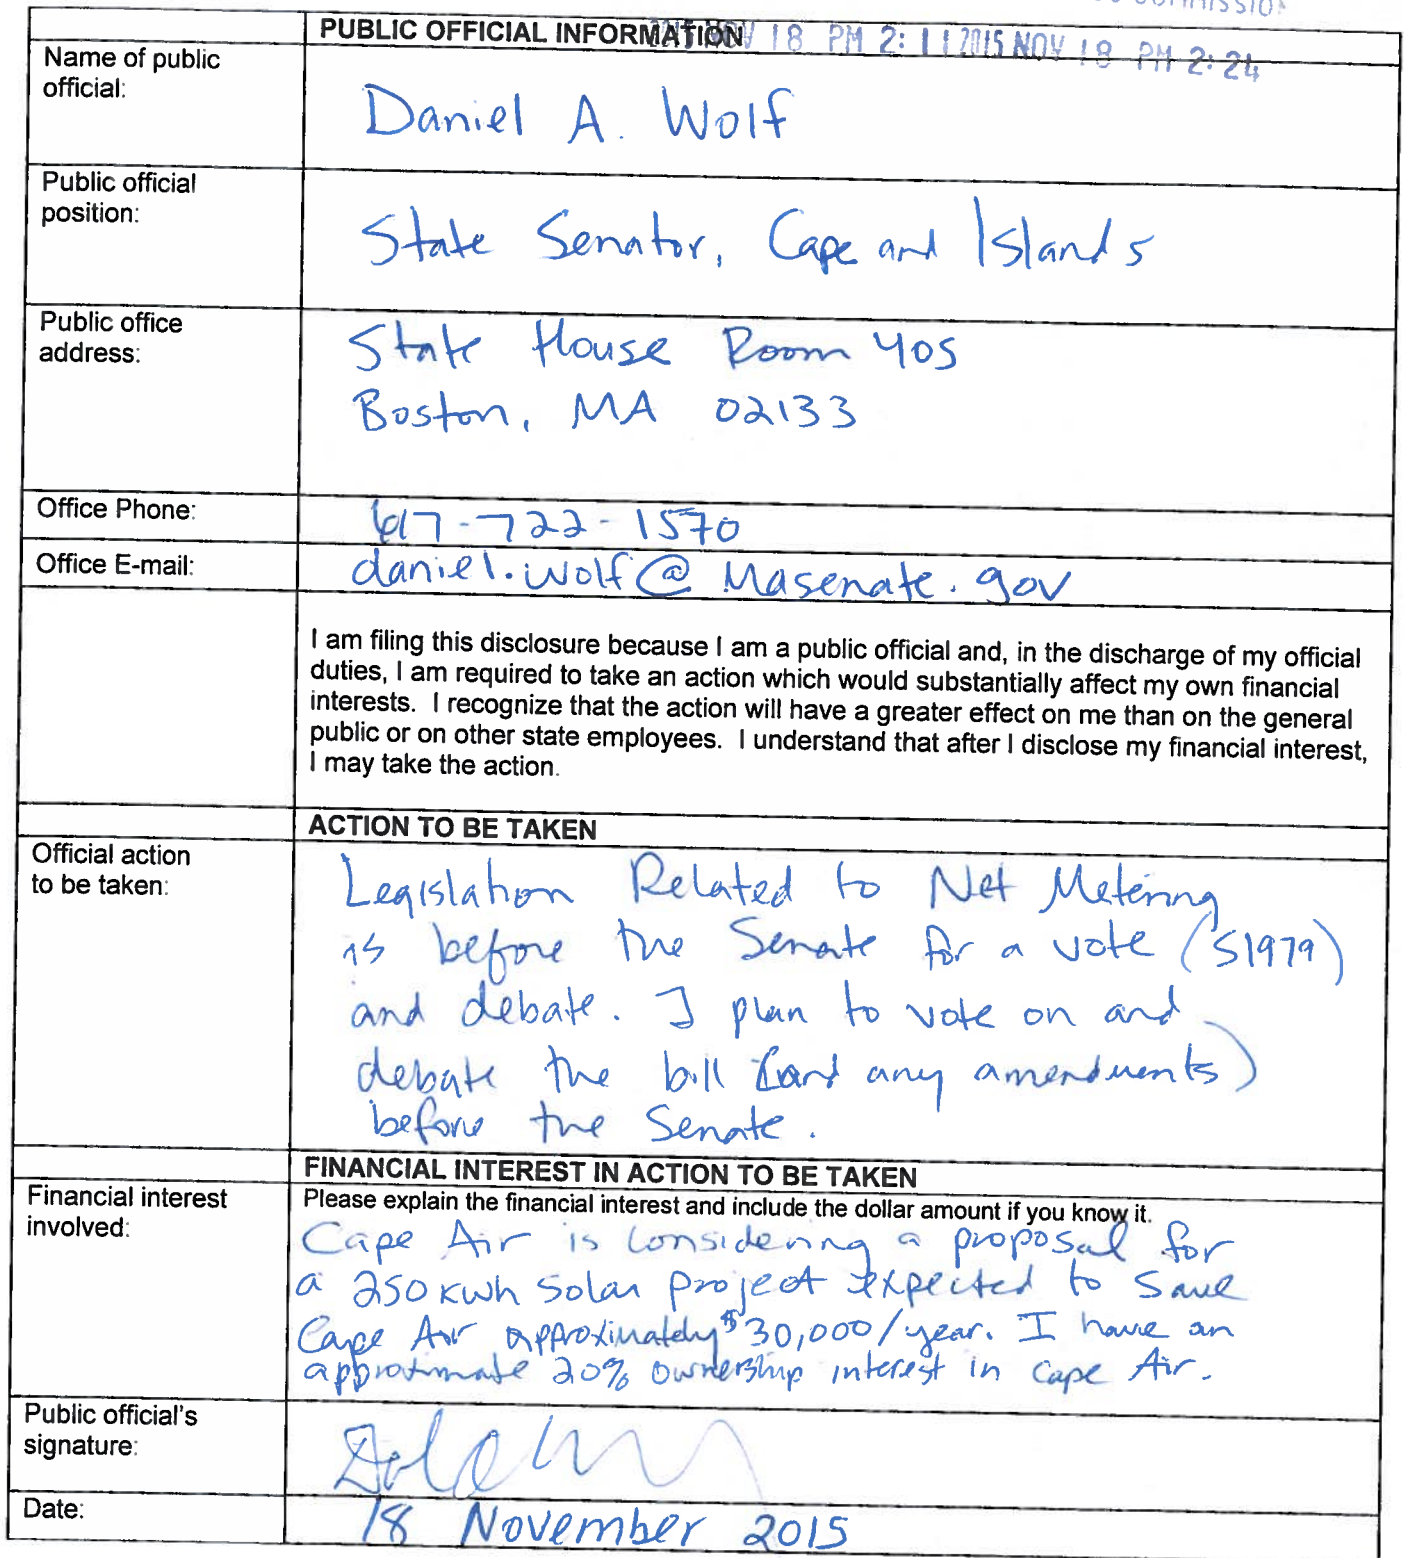 COMMISSION
PUBLIC OFFICIAL INFORMATION
NOV 18 PM 2: 11 2015 NOV 18 PM 2: 24
Name of public
official:
Daniel A. Wolf
Public official
position:
State Senator, Cape and Islands
Public office
address:
State House Room 405
Boston, MA 02133
Office Phone:
617-722-1570
Office E-mail:
daniel.wolf@Masenate.gov
I am filing this disclosure because I am a public official and, in the discharge of my official
duties, I am required to take an action which would substantially affect my own financial
interests. I recognize that the action will have a greater effect on me than on the general
public or on other state employees. I understand that after I disclose my financial interest,
I may take the action.
ACTION TO BE TAKEN
Official action
to be taken:
Legislation Related to Net Metering
is before the Senate for a vote (S1979)
and debate. I plan to vote on and
debate the bill (and any amendments)
before the Senate.
FINANCIAL INTEREST IN ACTION TO BE TAKEN
Financial interest
involved:
Please explain the financial interest and include the dollar amount if you know it.
Cape Air is considering a proposal for
a 250 kwh solar project expected to save
Cape Air approximately $30,000/year. I have an
approximate 20% ownership interest in Cape Air.
Public official's
signature:
Date:
18 November 2015